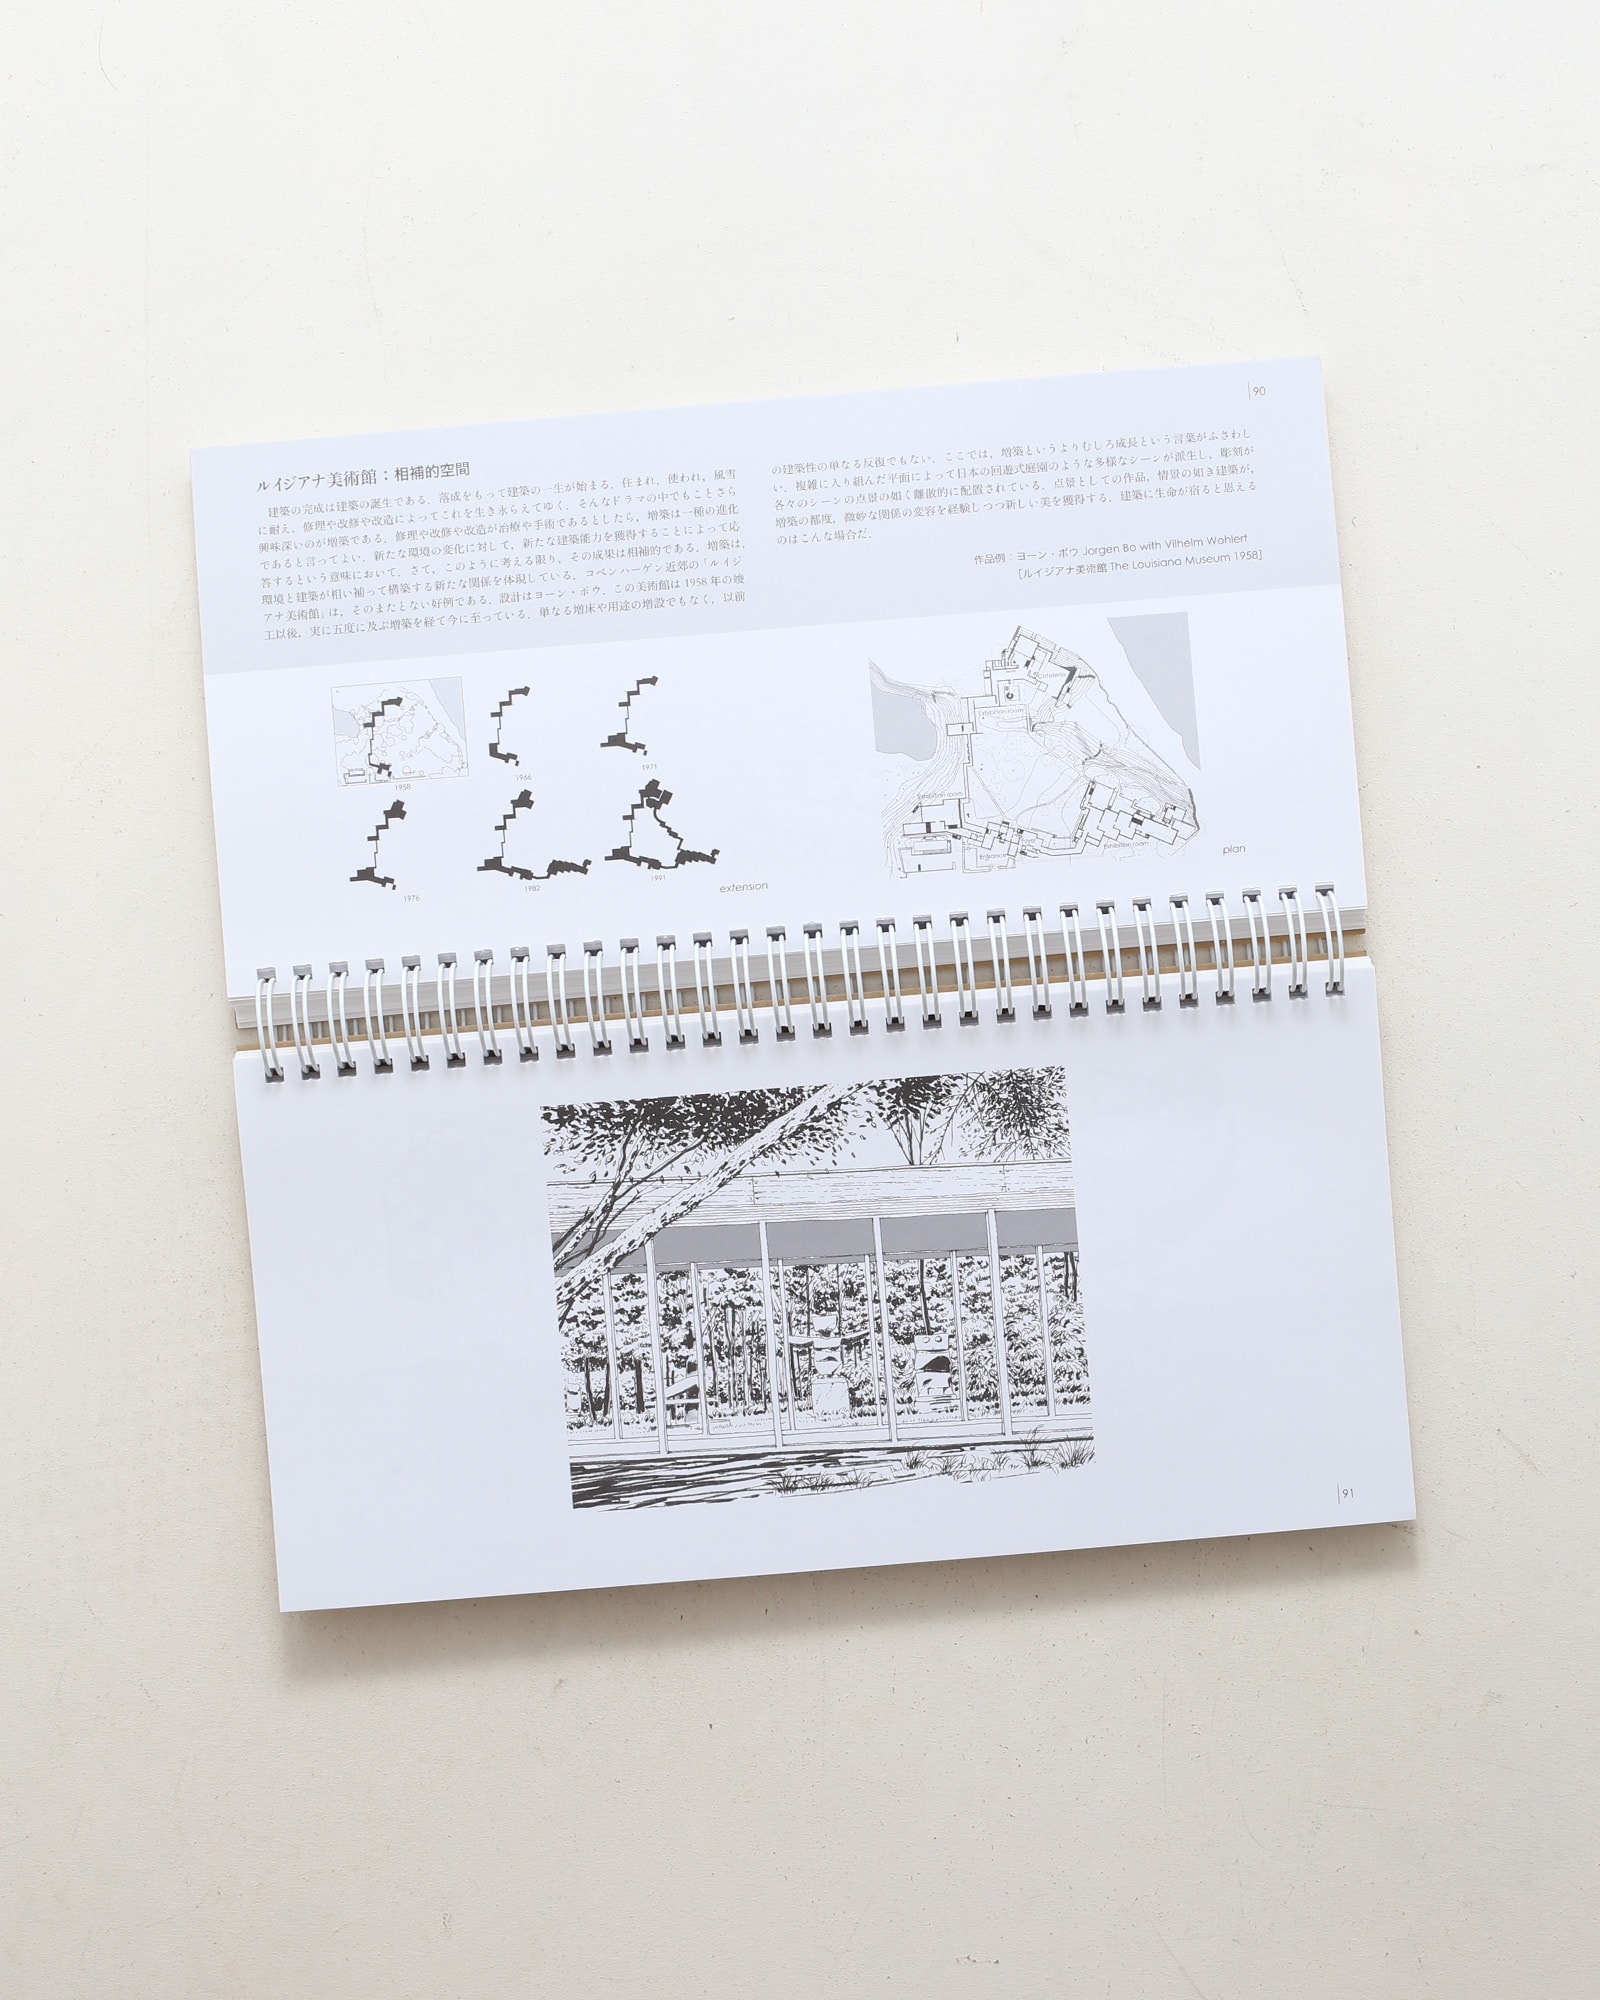 90
ルイジアナ美術館：相補的空間
建築の完成は建築の誕生である．落成をもって建築の一生が始まる．住まれ，使われ，風雪
に耐え，修理や改修や改造によってこれを生き永らえてゆく．そんなドラマの中でもことさら
興味深いのが増築である．修理や改修や改造が治療や手術であるとしたら，増築は一種の進化
であると言ってよい．新たな環境の変化に対して，新たな建築能力を獲得することによって応
答するという意味において．さて，このように考える限り，その成果は相補的である．増築は，
環境と建築が相い補って構築する新たな関係を体現している．コペンハーゲン近郊の「ルイジ
アナ美術館」は，そのまたとない好例である．設計はヨーン・ボウ．この美術館は 1958 年の竣
工以後，実に五度に及ぶ増築を経て今に至っている．単なる増床や用途の増設でもなく，以前
の建築性の単なる反復でもない．ここでは，増築というよりむしろ成長という言葉がふさわし
い．複雑に入り組んだ平面によって日本の回遊式庭園のような多様なシーンが派生し，彫刻が
各々のシーンの点景の如く離散的に配置されている．点景としての作品，情景の如き建築が，
増築の都度，微妙な関係の変容を経験しつつ新しい美を獲得する．建築に生命が宿ると思える
のはこんな場合だ．
作品例：ヨーン・ボウ Jorgen Bo with Vilhelm Wohlert
[ルイジアナ美術館 The Louisiana Museum 1958]
1958
1966
1971
1976
1982
1991
extension
Cafeteria
Exhibition room
Exhibition room
Entrance
Exhibition room
plan
91